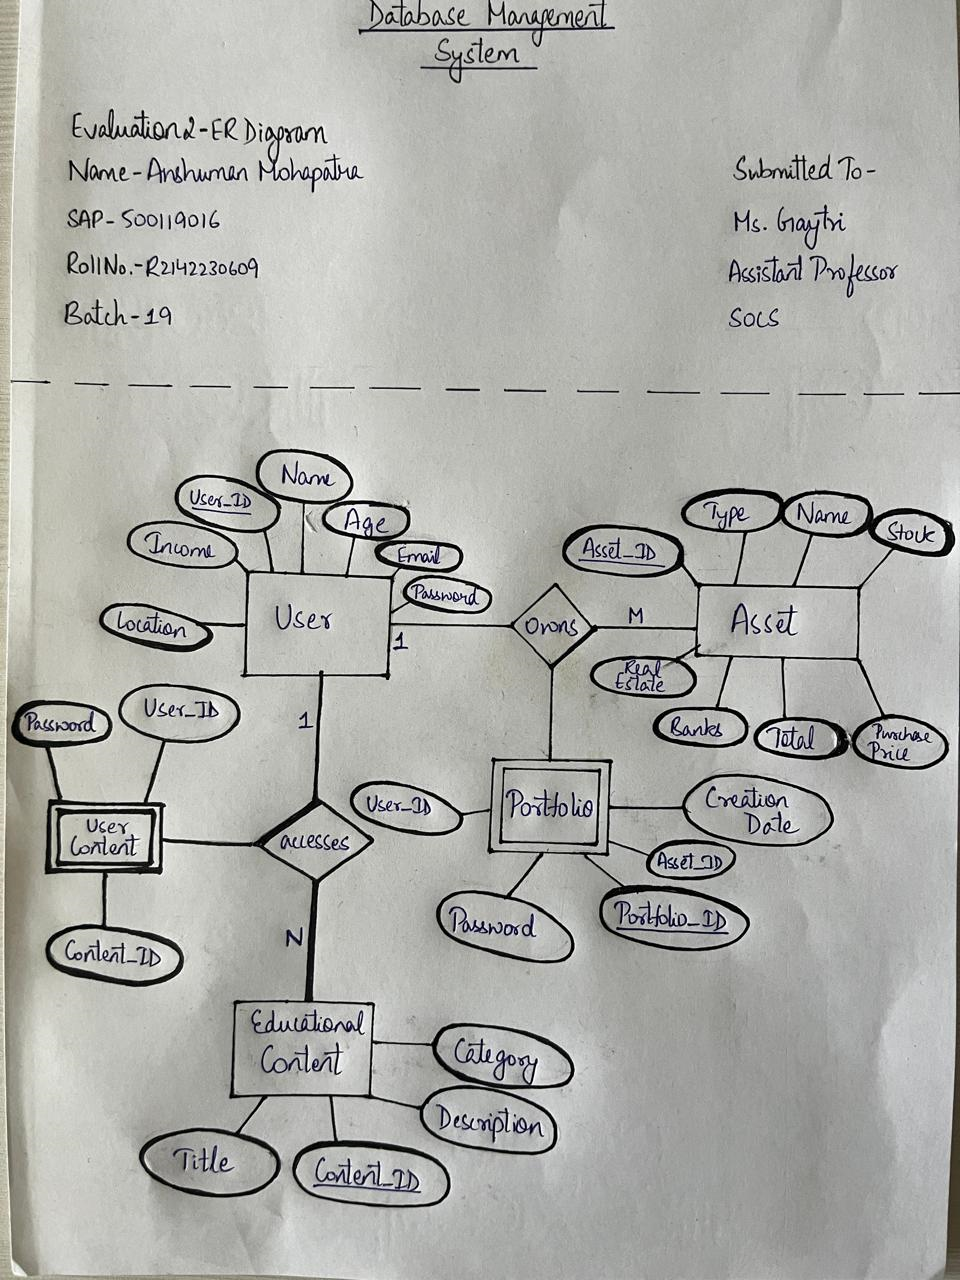 Database Management
System
Evaluation2-ER Diagram
Name-Anshuman Mohapatra
SAP-500119016
RollNo.-R2142230609
Batch-19
Submitted To-
Ms. Gaytri
Assistant Professor
SOCS
Name
User_ID
Age
Income
Email
Password
Location
User
1
1
Owns
M
Type
Name
Stock
Asset_ID
Asset
Real
Estate
Banks
Total
Purchase
Price
Password
User_ID
User
Content
Content_ID
accesses
N
User_ID
Portfolio
Creation
Date
Asset_ID
Password
Portfolio_ID
Educational
Content
Category
Description
Title
Content_ID